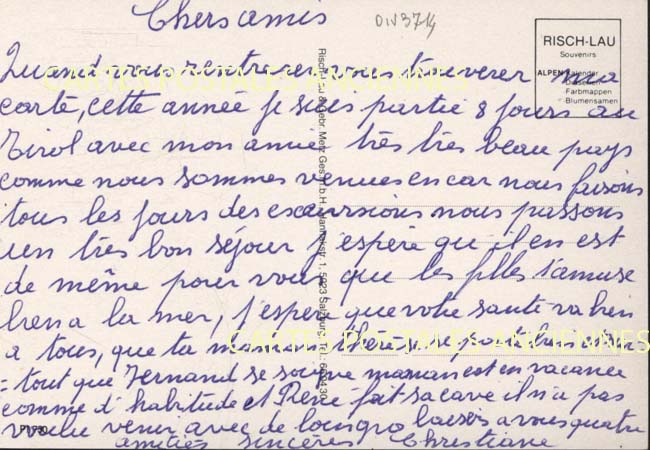 Chers amis
DIV3714
RISCH-LAU
Souvenirs
ALPEN-Kalender
-Farbmappen
-Blumensamen
Quand vous rentrerer vous trouverer ma
carte, cette année je suis partie 8 jours au
Tirol avec mon amie très très beau pays
comme nous sommes venues en car nous faisons
tous les jours des excursions nous passons
un très bon séjour j'espère qu'il en est
de même pour vous que les filles s'amuse
bien a la mer, j'espère que votre santé va bien
a tous, que ta maman thérèse se porte bien
tout que Fernand se soigne maman est en vacance
comme d'habitude et René fait sa cave il n'a pas
voulu venir avec de bons gros baisers a vous quatre
amitiés sincères Christiane
CARTES POSTALES ANCIENNES
CARTES POSTALES ANCIENNES